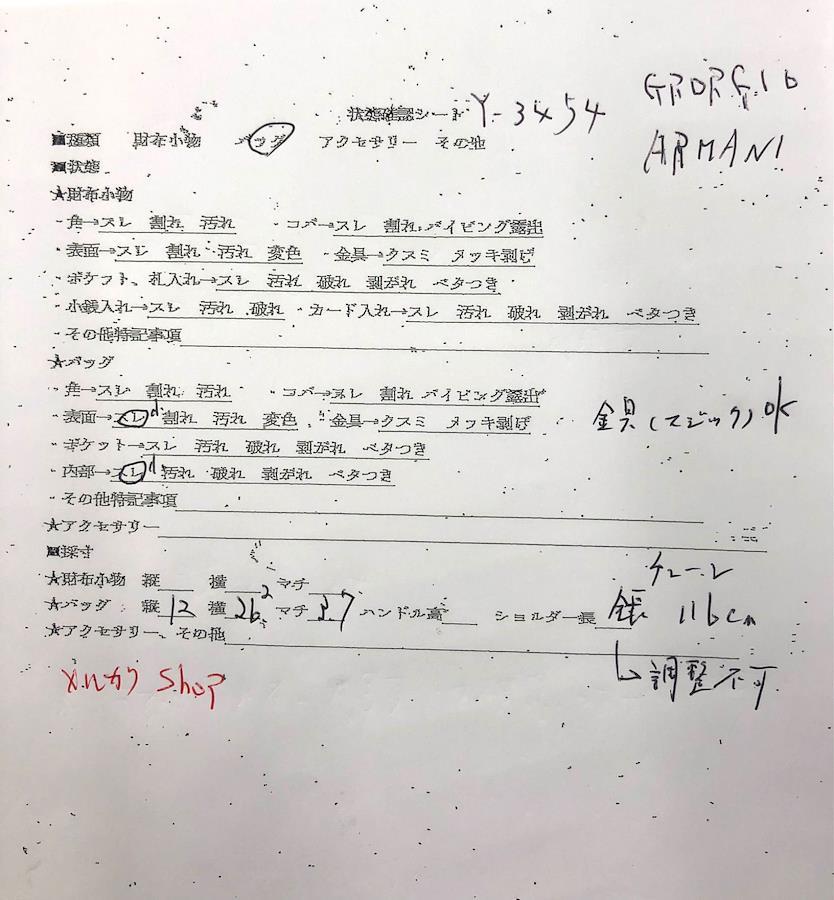 状態確認シート Y-3454 GEORGIO
ARMANI
■種類 財布小物 バッグ アクセサリー その他
■状態
★財布小物
・角→スレ 割れ 汚れ ・コバ→スレ 割れ パイピング露出
・表面→スレ 割れ 汚れ 変色 ・金具→クスミ メッキ剥げ
・ポケット、札入れ→スレ 汚れ 破れ 剥がれ ベタつき
・小銭入れ→スレ 汚れ 破れ ・カード入れ→スレ 汚れ 破れ 剥がれ ベタつき
・その他特記事項
★バッグ
・角→スレ 割れ 汚れ ・コバ→スレ 割れ パイピング露出
・表面→スレd 割れ 汚れ 変色 ・金具→クスミ メッキ剥げ 金具(マジック)OK
・ポケット→スレ 汚れ 破れ 剥がれ ベタつき
・内部→スレd 汚れ 破れ 剥がれ ベタつき
・その他特記事項
★アクセサリー
■採寸
★財布小物 縦 横 マチ チェーン
★バッグ 縦12 横26.2 マチ3.7 ハンドル高 ショルダー長 116cm
★アクセサリー、その他
↳調整不可
メルカリ Shop